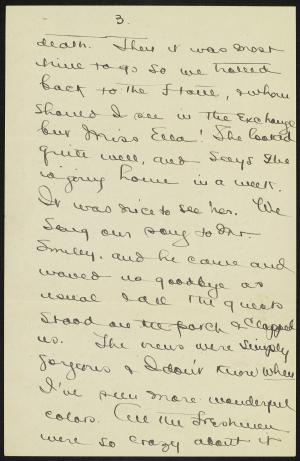 3.
death. Then it was most
time to go so we trotted
back to the Hotel, & whom
should I see in the Exchange
but Miss Ella! She looked
quite well, and says she
is going home in a week.
It was nice to see her. We
sang our song to Mr.
Smiley, and he came and
waved us goodbye as
usual & all the guests
stood on the porch & clapped
us. The views were simply
gorgeous & I don't know when
I've seen more wonderful
colors. All the Freshmen
were so crazy about it